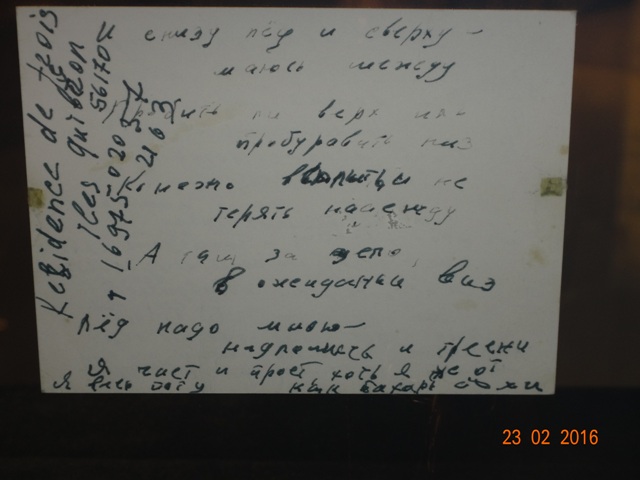 И снизу лёд и сверху –
маюсь между
Пробить ли верх иль
пробуравить низ
Конечно всплыть и не
терять надежду
А там за дело
в ожидании виз
Лёд надо мною –
надломись и тресни
Я чист и прост хоть я не от
Я весь в поту как пахарь
Residence de trois
iles quiberon
56170